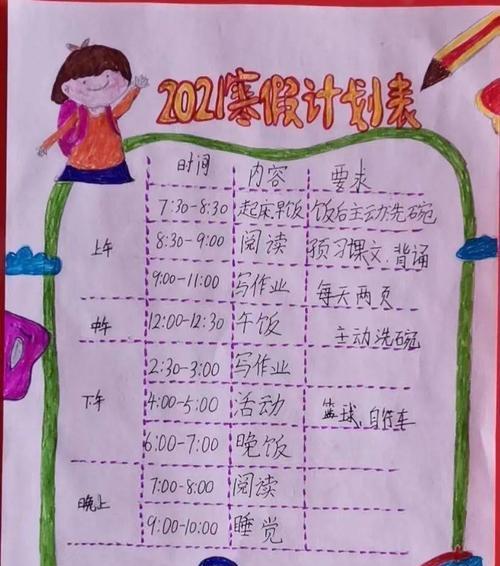 2021寒假计划表
时间 内容 要求
7:30-8:30 起床早饭 饭后主动洗碗
上午 8:30-9:00 阅读 预习课文、背诵
9:00-11:00 写作业 每天两页
中午 12:00-12:30 午饭 主动洗碗
2:30-3:00 写作业
下午 4:00-5:00 活动 篮球、自行车
6:00-7:00 晚饭
晚上 7:00-8:00 阅读
9:00-10:00 睡觉